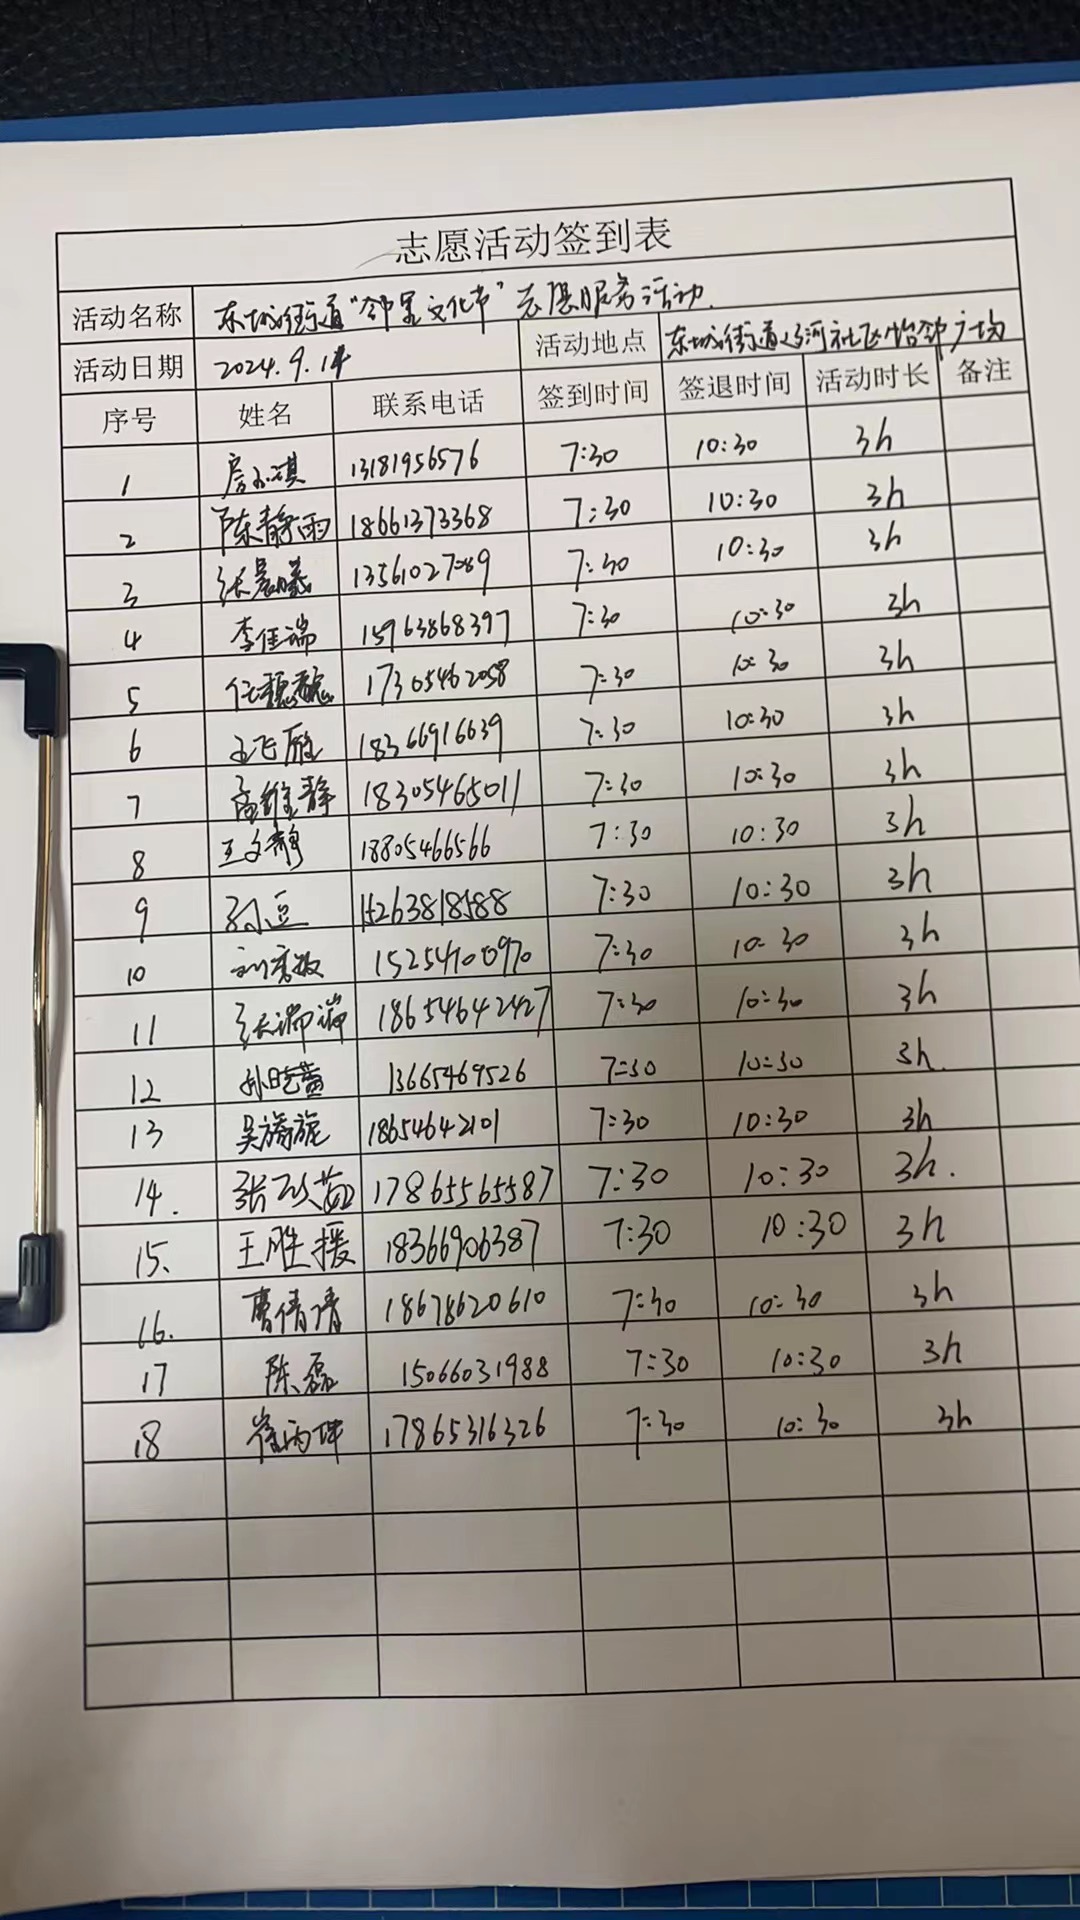 志愿活动签到表
活动名称 东城街道“邻里文化节”志愿服务活动.
活动日期 2024.9.14 活动地点 东城街道 河社区怡邻广场
序号 姓名 联系电话 签到时间 签退时间 活动时长 备注
1 房 琪 13181956576 7:30 10:30 3h
2 陈静雨 18661373368 7:30 10:30 3h
3 张晨曦 13561027089 7:30 10:30 3h
4 李佳瑞 15963868397 7:30 10:30 3h
5 任巍巍 17305462058 7:30 10:30 3h
6 王飞雁 18366916639 7:30 10:30 3h
7 高维静 18305465011 7:30 10:30 3h
8 王文静 18805466566 7:30 10:30 3h
9 孙豆 15263818588 7:30 10:30 3h
10 刘 敏 15254100970 7:30 10:30 3h
11 张瑞瑞 18654642427 7:30 10:30 3h
12 孙晓萱 13665469526 7:30 10:30 3h.
13 吴旖旎 18654642101 7:30 10:30 3h
14. 张 茹 17865565587 7:30 10:30 3h.
15. 王胜援 18366906387 7:30 10:30 3h
16. 曹倩倩 18678620610 7:30 10:30 3h
17 陈磊 15066031988 7:30 10:30 3h
18 崔丙坤 17865316326 7:30 10:30 3h